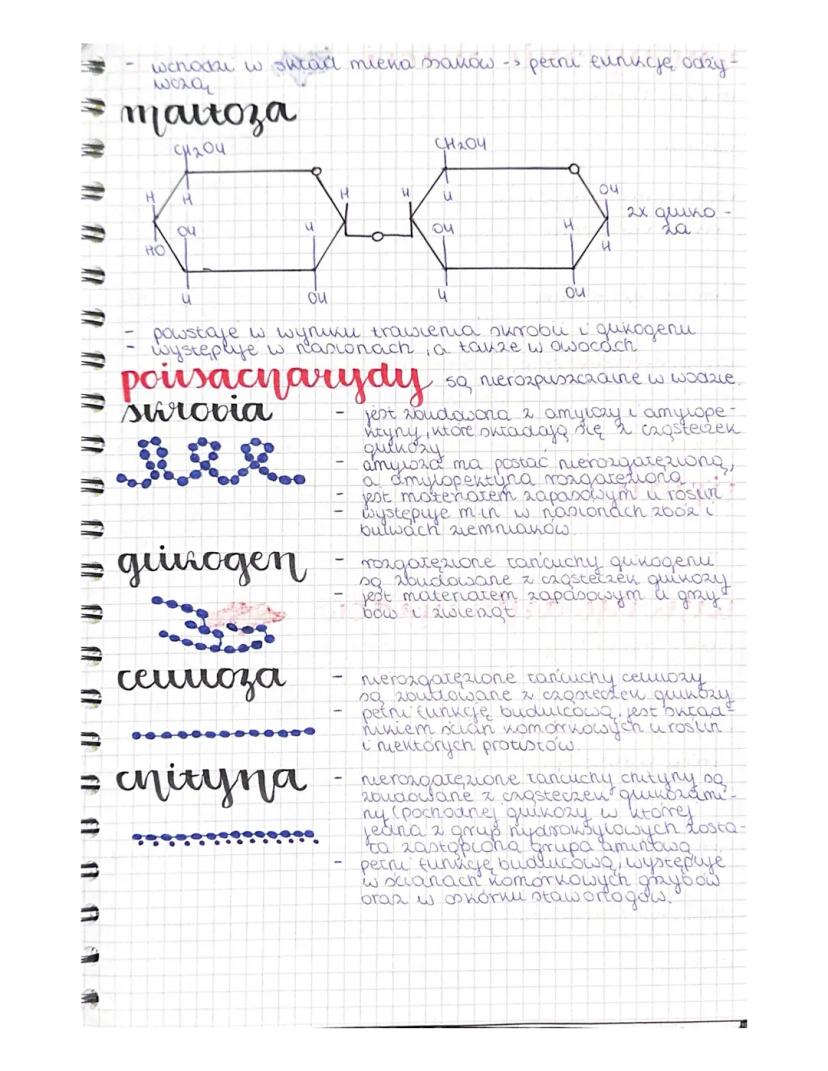 - wchodzi w skład mleka ssaków -> pełni funkcję odży-
wczą
maltoza
CH2OH CH2OH
H H H H H OH
OH H OH H 2x gluko-
za
HO H
H OH H OH
- powstaje w wyniku trawienia skrobii i glikogenu
- występuje w nasionach, a także w owocach
polisacharydy są nierozpuszczalne w wodzie.
skrobia
- jest zbudowana z amylozy i amylope-
ktyny, które składają się z cząsteczek
glukozy
- amyloza ma postać nierozgałęzioną,
a amylopektyna rozgałęzioną
- jest materiałem zapasowym u roślin
- występuje m.in w nasionach zbóż i
bulwach ziemniaków.
glikogen
- rozgałęzione łańcuchy glikogenu
są zbudowane z cząsteczek glukozy
- jest materiałem zapasowym u grzy-
bów i zwierząt
celuloza
- nierozgałęzione łańcuchy celulozy
są zbudowane z cząsteczek glukozy
- pełni funkcję budulcową, jest skład-
nikiem ścian komórkowych u roślin
i niektórych protistów.
chityna
- nierozgałęzione łańcuchy chityny są
zbudowane z cząsteczek glukozami-
ny (pochodnej glukozy w której
jedna z grup hydroksylowych zosta-
ła zastąpiona grupą aminową
- pełni funkcję budulcową, występuje
w ścianach komórkowych grzybów
oraz w oskórku stawonogów.